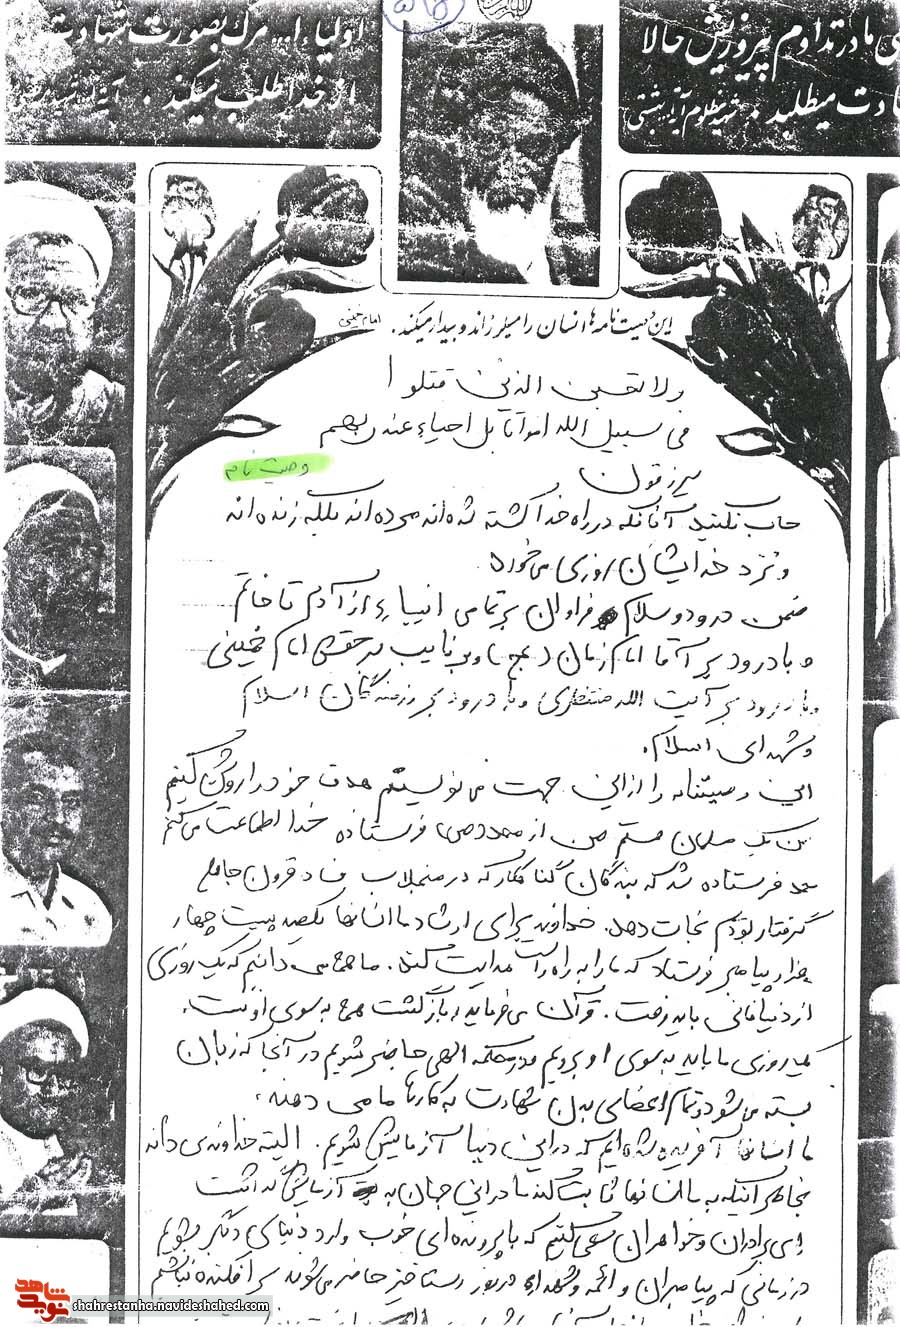 اولیاء ا... مرگ بصورت شهادت
از خدا طلب میکند.
ما در تداوم پیروزیش حالا
میطلبد. شهید مظلوم آیة... بهشتی
این وصیت نامه ها انسان را میلرزاند و بیدار میکند. امام خمینی
ولا تحسبن الذین قتلوا
فی سبیل الله امواتا بل احیاء عند ربهم
یرزقون
وصیت نامه
حساب نکنید آنانکه در راه خدا کشته شده اند مرده اند بلکه زنده اند
و نزد خدایشان روزی می خورند
ضمن درود و سلام فراوان بر تمامی انبیاء از آدم تا خاتم
و با درود بر آقا امام زمان (عج) و بر نایب بر حقش امام خمینی
و با درود بر آیت الله منتظری و با درود بر رزمندگان اسلام
و شهدای اسلام.
این وصیتنامه را از این جهت می نویسم هدف خود را روشن کنیم
من یک مسلمان هستم من از محمد (ص) فرستاده خدا اطاعت می کنم
محمد فرستاده شد که بندگان گناهکار که در منجلاب فساد قرون جاهلی
گرفتار بودیم نجات دهد. خداوند برای ارشاد ما انسانها یکصد بیست چهار
هزار پیامبر فرستاد که ما را به راه راست هدایت کند. ما همه می دانیم که یک روزی
از دنیا فانی باید رفت. قرآن می فرماید، بازگشت همه به سوی اوست.
یک روزی ما باید به سوی او برویم و در محکمه الهی حاضر شویم در آنجا که زبان
بسته می شود و تمام اعضای بدن شهادت به کارها ما می دهند،
ما انسانها آفریده شده ایم که در این دنیا آزمایش شویم. البته خداوند می داند
بخاطر اینکه به ما انسانها ثابت کند ما در این جهان به آزمایش گذاشت
ای برادران و خواهران سعی کنیم که با پرونده ای خوب وارد دنیای دیگر بشویم
در زمانی که پیامبران و ائمه و شهدا در روز رستاخیز حاضر می شوند سرافکنده نباشیم
شاهد
نوید
shahrestanha.navideshahed.com